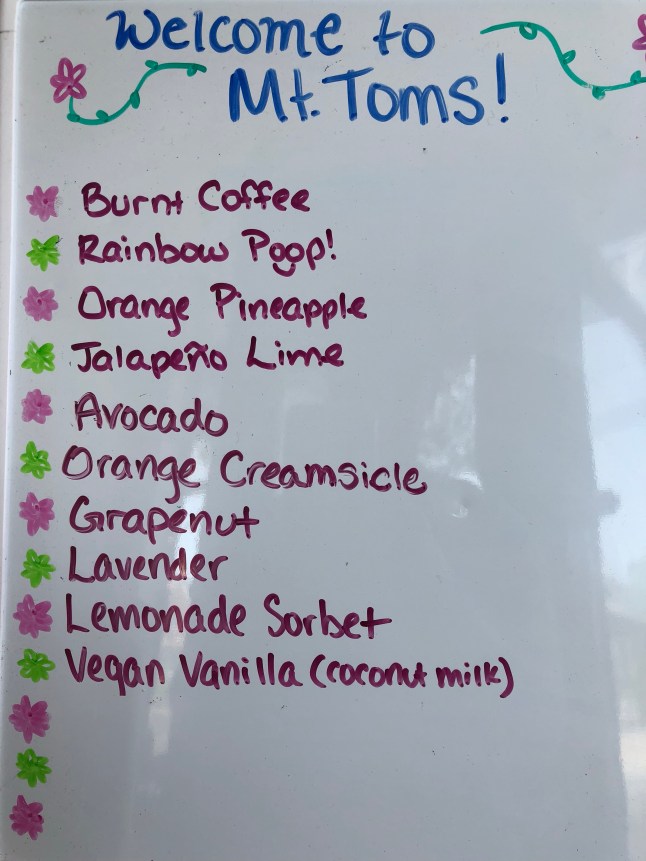 Welcome to
Mt. Toms!
Burnt Coffee
Rainbow Poop!
Orange Pineapple
Jalapeño Lime
Avocado
Orange Creamsicle
Grapenut
Lavender
Lemonade Sorbet
Vegan Vanilla (coconut milk)